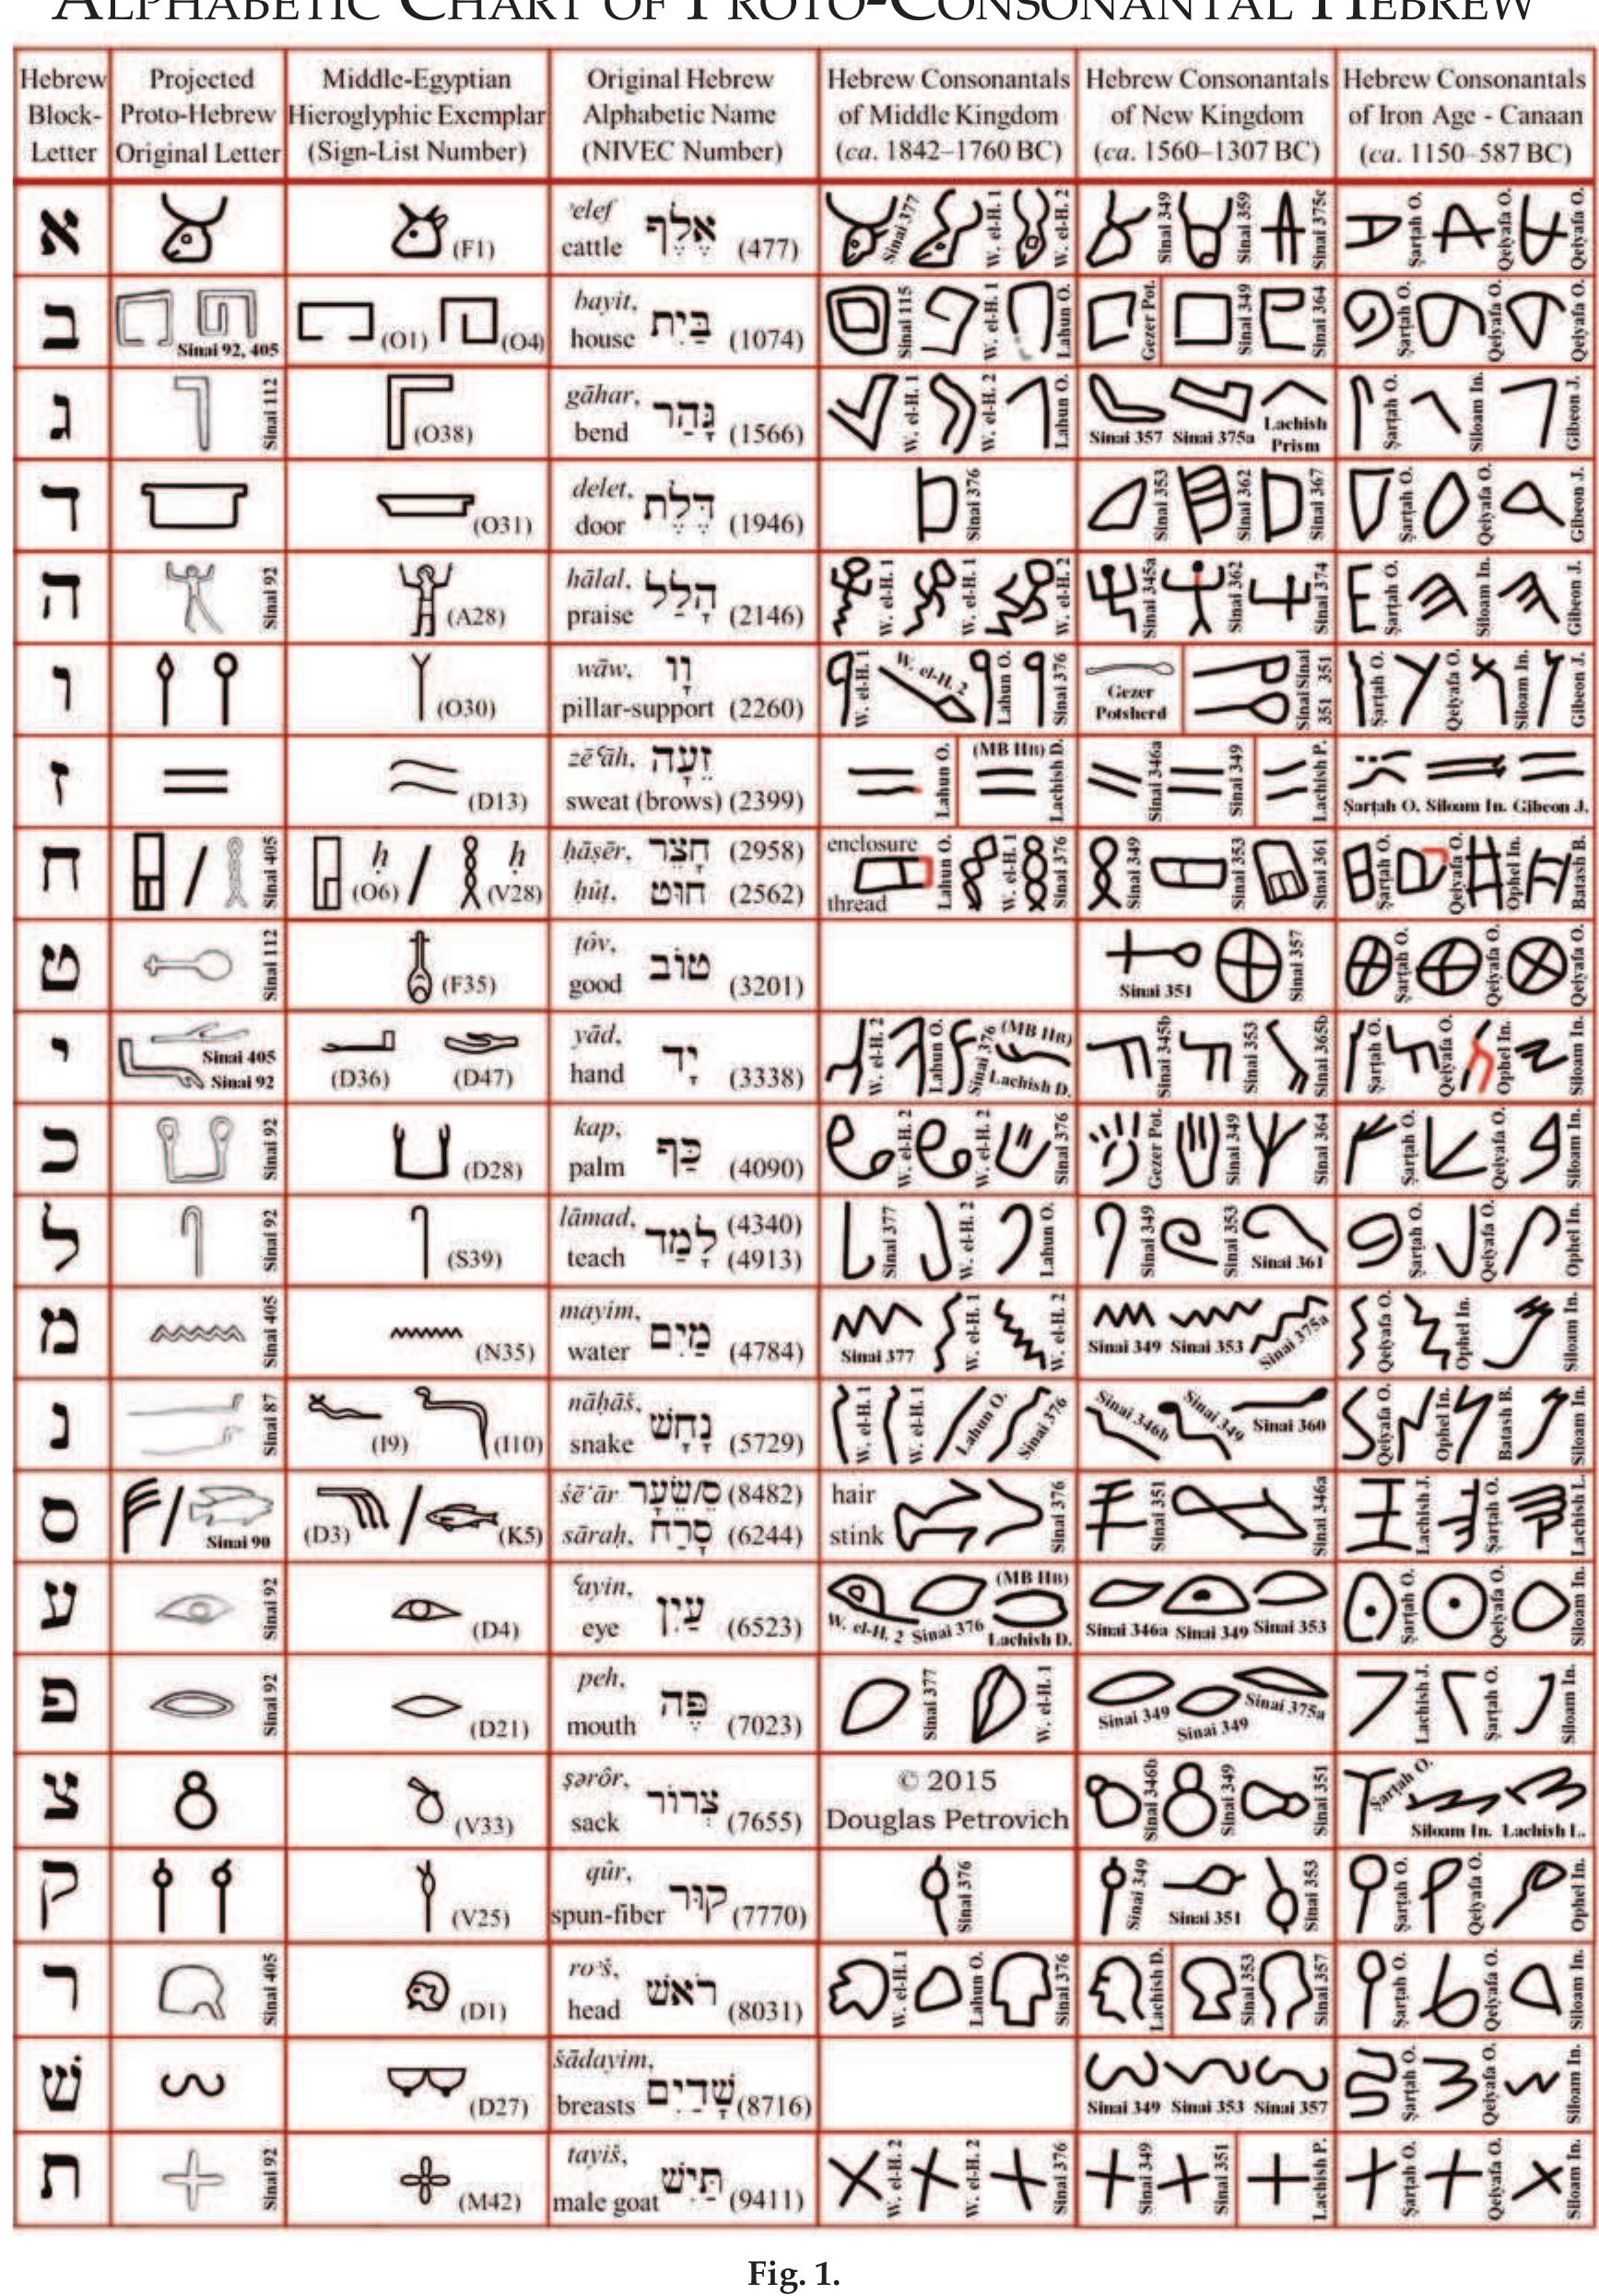 ALPHABETIC CHART OF PROTO-CONSONANTAL HEBREW
Hebrew Block-Letter
Projected Proto-Hebrew Original Letter
Middle-Egyptian Hieroglyphic Exemplar (Sign-List Number)
Original Hebrew Alphabetic Name (NIVEC Number)
Hebrew Consonantals of Middle Kingdom (ca. 1842–1760 BC)
Hebrew Consonantals of New Kingdom (ca. 1560–1307 BC)
Hebrew Consonantals of Iron Age - Canaan (ca. 1150–587 BC)
א (F1) ʾelef cattle אֶלֶף (477) Sinai 377 W. el-H. 1 W. el-H. 2 Sinai 349 Sinai 359 Sinai 375c Ṣarṭah O. Qeiyafa O. Qeiyafa O.
ב Sinai 92, 405 (O1) (O4) bayit, house בַּיִת (1074) Sinai 115 W. el-H. 1 Lahun O. Gezer Pot. Sinai 349 Sinai 364 Ṣarṭah O. Qeiyafa O. Qeiyafa O.
ג Sinai 112 (O38) gāhar, bend גָּהַר (1566) W. el-H. 1 W. el-H. 2 Lahun O. Sinai 357 Sinai 375a Lachish Prism Ṣarṭah O. Siloam In. Gibeon J.
ד (O31) delet, door דֶּלֶת (1946) Sinai 376 Sinai 353 Sinai 362 Sinai 367 Ṣarṭah O. Qeiyafa O. Gibeon J.
ה Sinai 92 (A28) hālal, praise הָלַל (2146) W. el-H. 1 W. el-H. 1 W. el-H. 2 Sinai 345a Sinai 362 Sinai 374 Ṣarṭah O. Siloam In. Gibeon J.
ו (O30) wāw, pillar-support וָו (2260) W. el-H. 1 W. el-H. 2 Lahun O. Sinai 376 Gezer Potsherd Sinai 351 Sinai 351 Ṣarṭah O. Qeiyafa O. Siloam In. Gibeon J.
ז (D13) zēʿāh, sweat (brows) זֵעָה (2399) Lahun O. (MB IIB) Lachish D. Sinai 346a Sinai 349 Lachish P. Ṣarṭah O. Siloam In. Gibeon J.
ח Sinai 405 ḥ (O6) ḥ (V28) ḥāṣēr, חָצֵר (2958) ḥûṭ, חוּט (2562) enclosure thread Lahun O. W. el-H. 1 Sinai 376 Sinai 349 Sinai 353 Sinai 361 Ṣarṭah O. Qeiyafa O. Ophel In. Batash B.
ט Sinai 112 (F35) ṭôv, good טוֹב (3201) Sinai 351 Sinai 357 Ṣarṭah O. Qeiyafa O. Qeiyafa O.
י Sinai 405 Sinai 92 (D36) (D47) yād, hand יָד (3338) W. el-H. 2 Lahun O. Sinai 376 (MB IIB) Lachish D. Sinai 345b Sinai 353 Sinai 365b Ṣarṭah O. Qeiyafa O. Ophel In. Siloam In.
כ Sinai 92 (D28) kap, palm כַּף (4090) W. el-H. 2 W. el-H. 2 Sinai 376 Gezer Pot. Sinai 349 Sinai 364 Ṣarṭah O. Qeiyafa O. Siloam In.
ל Sinai 92 (S39) lāmad, teach לָמַד (4340) (4913) Sinai 377 W. el-H. 2 Lahun O. Sinai 349 Sinai 353 Sinai 361 Ṣarṭah O. Qeiyafa O. Ophel In.
מ Sinai 405 (N35) mayim, water מַיִם (4784) Sinai 377 W. el-H. 1 W. el-H. 2 Sinai 349 Sinai 353 Sinai 375a Qeiyafa O. Ophel In. Siloam In.
נ Sinai 87 (I9) (I10) nāḥāš, snake נָחָשׁ (5729) W. el-H. 1 W. el-H. 1 Lahun O. Sinai 376 Sinai 346b Sinai 349 Sinai 360 Qeiyafa O. Ophel In. Batash B. Siloam In.
ס Sinai 90 (D3) (K5) śēʿār ס/שֵׂעָר (8482) sāraḥ, סָרַח (6244) hair stink Sinai 376 Sinai 351 Sinai 346a Lachish J. Ṣarṭah O. Lachish L.
ע Sinai 92 (D4) ʿayin, eye עַיִן (6523) W. el-H. 2 Sinai 376 (MB IIB) Lachish D. Sinai 346a Sinai 349 Sinai 353 Ṣarṭah O. Qeiyafa O. Siloam In.
פ Sinai 92 (D21) peh, mouth פֶּה (7023) Sinai 377 W. el-H. 1 Sinai 349 Sinai 349 Sinai 375a Lachish J. Ṣarṭah O. Siloam In.
צ (V33) ṣərôr, sack צְרוֹר (7655) © 2015 Douglas Petrovich Sinai 346b Sinai 349 Sinai 351 Ṣarṭah O. Siloam In. Lachish L.
ק (V25) qûr, spun-fiber קוּר (7770) Sinai 376 Sinai 349 Sinai 351 Sinai 353 Ṣarṭah O. Qeiyafa O. Ophel In.
ר Sinai 405 (D1) roʾš, head רֹאשׁ (8031) W. el-H. 1 Lahun O. Sinai 376 Lachish D. Sinai 353 Sinai 357 Ṣarṭah O. Qeiyafa O. Siloam In.
שׁ (D27) šādayim, breasts שָׁדַיִם (8716) Sinai 349 Sinai 353 Sinai 357 Ṣarṭah O. Qeiyafa O. Siloam In.
ת Sinai 92 (M42) tayiš, male goat תַּיִשׁ (9411) W. el-H. 2 W. el-H. 2 Sinai 376 Sinai 349 Sinai 351 Lachish P. Ṣarṭah O. Qeiyafa O. Siloam In.
Fig. 1.